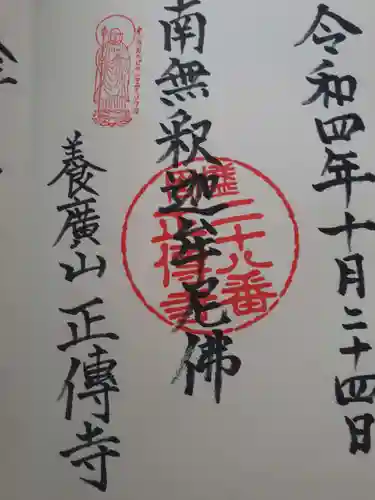 令和四年十月二十四日
南無釈迦牟尼佛
二十八番
正傳寺
養廣山 正傳寺